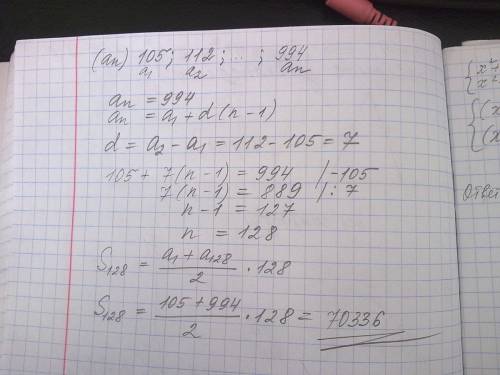 (an) 105; 112; ...; 994
a₁ a₂ an
an = 994
an = a₁ + d(n-1)
d = a₂ - a₁ = 112 - 105 = 7
105 + 7(n-1) = 994 /-105
7(n-1) = 889 /: 7
n-1 = 127
n = 128
S₁₂₈ = (a₁ + a₁₂₈)/2 · 128
S₁₂₈ = (105 + 994)/2 · 128 = 70336
Ответ